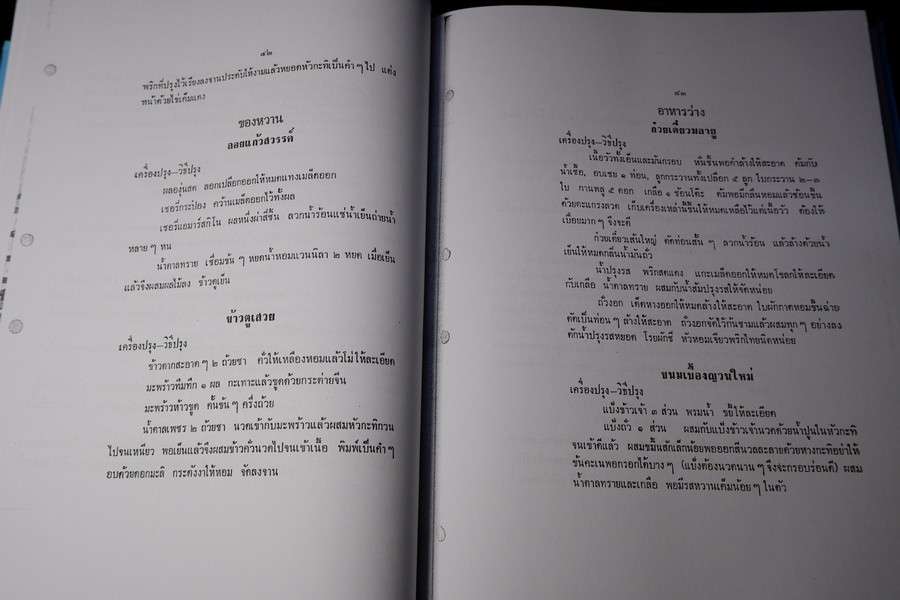 ๔๒
พริกที่ปรุงไว้เรียงลงจานประดับให้งามแล้วหยอดหัวกะทิเป็นคำ ๆ ไป แต่ง
หน้าด้วยไข่เค็มแดง
ของหวาน
ลอยแก้วสวรรค์
เครื่องปรุง—วิธีปรุง
ผลองุ่นสด ลอกเปลือกออกให้หมดแทงเมล็ดออก
เชอรี่กระป๋อง คว้านเมล็ดออกไว้ทั้งผล
เชอรี่แอมาร์สกิโน ผลหนึ่งผ่าสี่ชิ้น ลวกน้ำร้อนแช่น้ำเย็นถ่ายน้ำ
หลาย ๆ หน
น้ำตาลทราย เชื่อมข้น ๆ หยดน้ำหอมแวนนิลา ๒ หยด เมื่อเย็น
แล้วจึงผสมผลไม้ลง ข้าวตูเย็น
ข้าวตูเสวย
เครื่องปรุง—วิธีปรุง
ข้าวตากสะอาด ๆ ๒ ถ้วยชา คั่วให้เหลืองหอมแล้วโม่ให้ละเอียด
มะพร้าวทึมทึก ๑ ผล กะเทาะแล้วขูดด้วยกระต่ายจีน
มะพร้าวห้าวขูด คั้นข้น ๆ ครึ่งถ้วย
น้ำตาลเพชร ๒ ถ้วยชา นวดเข้ากับมะพร้าวแล้วผสมหัวกะทิกวน
ไปจนเหนียว พอเย็นแล้วจึงผสมข้าวคั่วนวดไปจนเข้าเนื้อ พิมพ์เป็นคำ ๆ
อบด้วยดอกมะลิ กระดังงาให้หอม จัดลงจาน
๔๓
อาหารว่าง
ก๋วยเตี๋ยวมลายู
เครื่องปรุง—วิธีปรุง
เนื้อวัวทั้งเอ็นและมันกรอบ หั่นชิ้นพอคำล้างให้สะอาด ต้มกับ
น้ำเชื้อ, อบเชย ๑ ท่อน, ลูกกระวานทั้งเปลือก ๕ ลูก ใบกระวาน ๒—๓
ใบ กานพลู ๕ ดอก เกลือ ๑ ช้อนโต๊ะ ต้มพอมีกลิ่นหอมแล้วช้อนขึ้น
ด้วยตะแกรงลวด เก็บเครื่องเหล่านี้ขึ้นให้หมดเหลือไว้แต่เนื้อวัว ต้องให้
เปื่อยมาก ๆ จึงจะดี
ก๋วยเตี๋ยวเส้นใหญ่ ตัดท่อนสั้น ๆ ลวกน้ำร้อน แล้วล้างด้วยน้ำ
เย็นให้หมดกลิ่นน้ำมันถั่ว
น้ำปรุงรส พริกสดแดง แกะเมล็ดออกให้หมดโขลกให้ละเอียด
กับเกลือ น้ำตาลทราย ผสมกับน้ำส้มปรุงรสให้จัดหน่อย
ถั่วงอก เด็ดหางออกให้หมดล้างให้สะอาด ใบผักกาดหอมชิ้นฉ่าย
ตัดเป็นท่อน ๆ ล้างให้สะอาด ถั่วงอกจัดไว้ก้นชามแล้วผสมทุก ๆ อย่างลง
ตักน้ำปรุงรสหยอด โรยผักชี หัวหอมเจียวพริกไทยนิดหน่อย
ขนมเบื้องญวนใหม่
เครื่องปรุง—วิธีปรุง
แป้งข้าวเจ้า ๓ ส่วน พรมน้ำ ขยี้ให้ละเอียด
แป้งถั่ว ๑ ส่วน ผสมกับแป้งข้าวเจ้านวดด้วยน้ำปูนในหัวกะทิ
จนเข้าดีแล้ว ผสมขมิ้นสักเล็กน้อยพอออกสีนวลละลายด้วยหางกะทิอย่าให้
ข้นคะเนพอกรอกได้บาง ๆ (แป้งต้องนวดนาน ๆ จึงจะกรอบร่อนดี) ผสม
น้ำตาลทรายและเกลือ พอมีรสหวานเค็มน้อย ๆ ในตัว